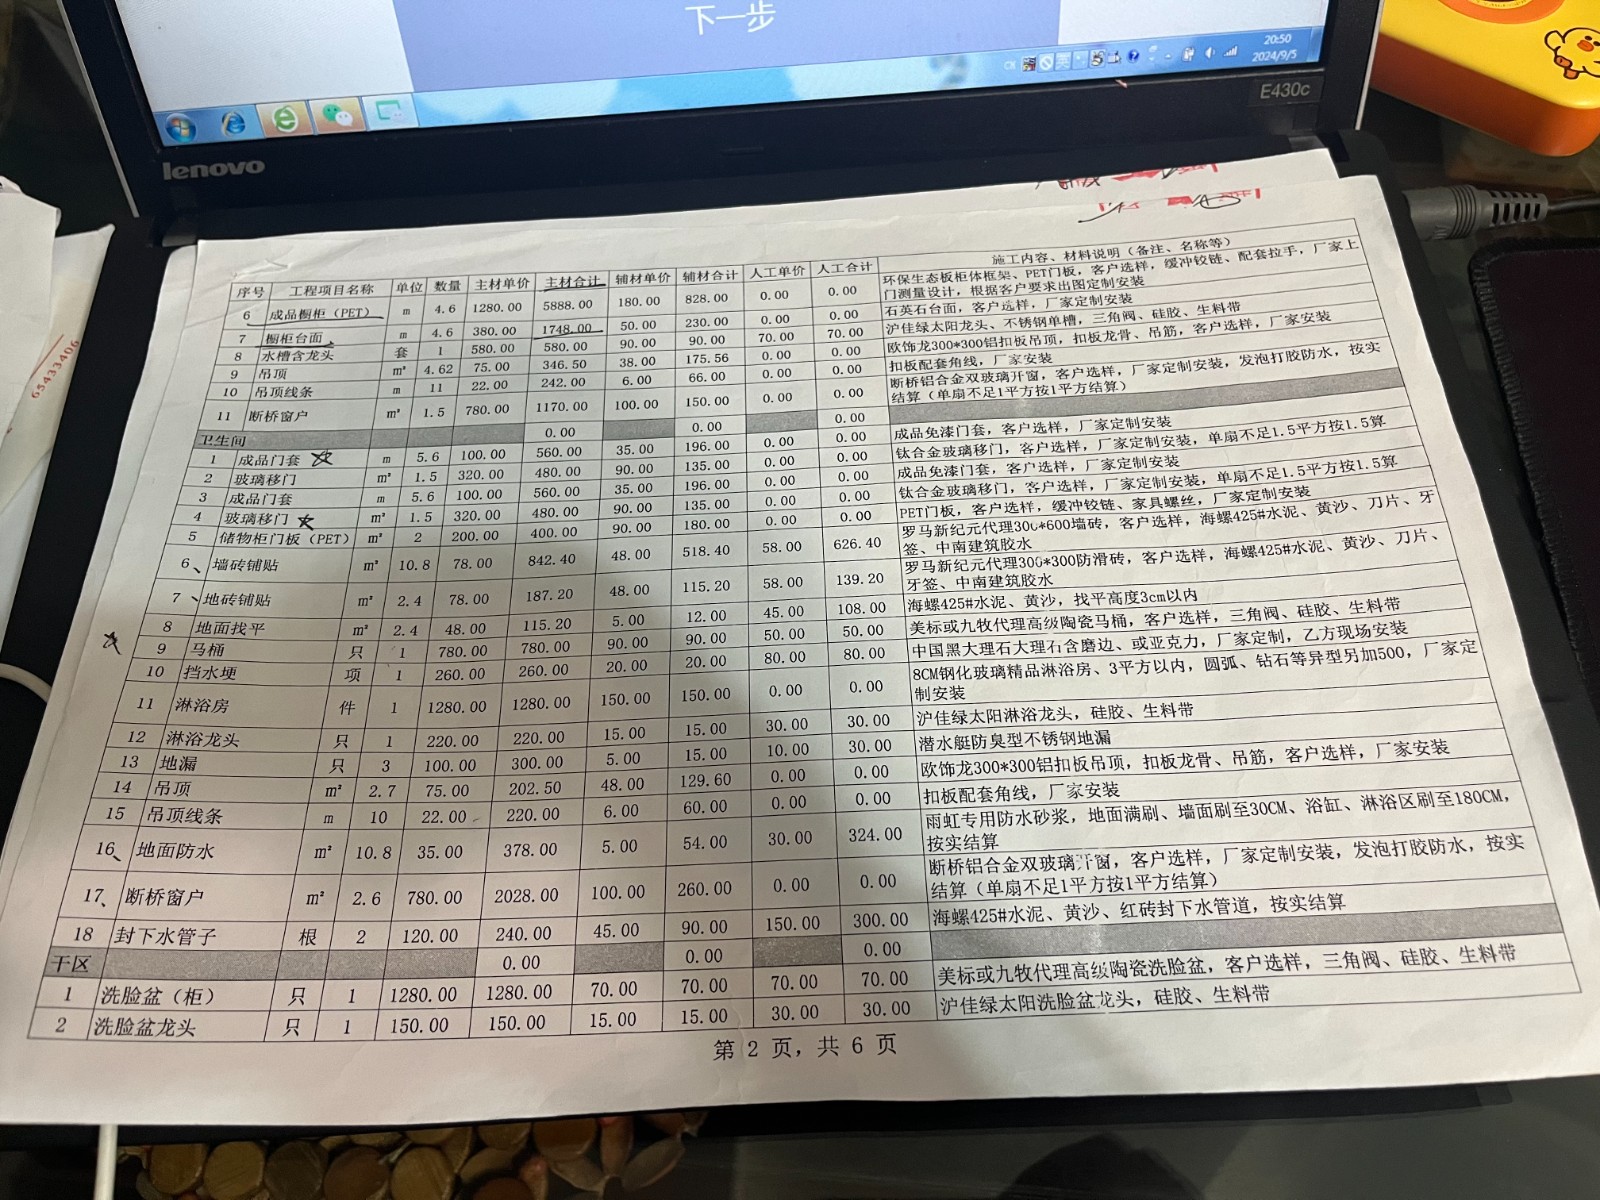 下一步
20:50
2024/9/5
CH
E430c
lenovo
65433406
序号 工程项目名称 单位 数量 主材单价 主材合计 辅材单价 辅材合计 人工单价 人工合计 施工内容、材料说明（备注、名称等）
6 成品橱柜（PET） m 4.6 1280.00 5888.00 180.00 828.00 0.00 0.00 环保生态板柜体框架、PET门板，客户选样，缓冲铰链、配套拉手，厂家上
门测量设计，根据客户要求出图定制安装
7 橱柜台面 m 4.6 380.00 1748.00 50.00 230.00 0.00 0.00 石英石台面，客户选样，厂家定制安装
8 水槽含龙头 套 1 580.00 580.00 90.00 90.00 70.00 70.00 沪佳绿太阳龙头、不锈钢单槽，三角阀、硅胶、生料带
9 吊顶 m² 4.62 75.00 346.50 38.00 175.56 0.00 0.00 欧饰龙300*300铝扣板吊顶，扣板龙骨、吊筋，客户选样，厂家安装
10 吊顶线条 m 11 22.00 242.00 6.00 66.00 0.00 0.00 扣板配套角线，厂家安装
11 断桥窗户 m² 1.5 780.00 1170.00 100.00 150.00 0.00 0.00 断桥铝合金双玻璃开窗，客户选样，厂家定制安装，发泡打胶防水，按实
结算（单扇不足1平方按1平方结算）
卫生间 0.00 0.00 0.00
1 成品门套 m 5.6 100.00 560.00 35.00 196.00 0.00 0.00 成品免漆门套，客户选样，厂家定制安装
2 玻璃移门 m² 1.5 320.00 480.00 90.00 135.00 0.00 0.00 钛合金玻璃移门，客户选样，厂家定制安装，单扇不足1.5平方按1.5算
3 成品门套 m 5.6 100.00 560.00 35.00 196.00 0.00 0.00 成品免漆门套，客户选样，厂家定制安装
4 玻璃移门 m² 1.5 320.00 480.00 90.00 135.00 0.00 0.00 钛合金玻璃移门，客户选样，厂家定制安装，单扇不足1.5平方按1.5算
5 储物柜门板（PET） m² 2 200.00 400.00 90.00 180.00 0.00 0.00 PET门板，客户选样，缓冲铰链、家具螺丝，厂家定制安装
6、 墙砖铺贴 m² 10.8 78.00 842.40 48.00 518.40 58.00 626.40 罗马新纪元代理300*600墙砖，客户选样，海螺425#水泥、黄沙、刀片、牙
签、中南建筑胶水
7、 地砖铺贴 m² 2.4 78.00 187.20 48.00 115.20 58.00 139.20 罗马新纪元代理300*300防滑砖，客户选样，海螺425#水泥、黄沙、刀片、
牙签、中南建筑胶水
8 地面找平 m² 2.4 48.00 115.20 5.00 12.00 45.00 108.00 海螺425#水泥、黄沙，找平高度3cm以内
9 马桶 只 1 780.00 780.00 90.00 90.00 50.00 50.00 美标或九牧代理高级陶瓷马桶，客户选样，三角阀、硅胶、生料带
10 挡水埂 项 1 260.00 260.00 20.00 20.00 80.00 80.00 中国黑大理石大理石含磨边、或亚克力，厂家定制，乙方现场安装
11 淋浴房 件 1 1280.00 1280.00 150.00 150.00 0.00 0.00 8CM钢化玻璃精品淋浴房、3平方以内，圆弧、钻石等异型另加500，厂家定
制安装
12 淋浴龙头 只 1 220.00 220.00 15.00 15.00 30.00 30.00 沪佳绿太阳淋浴龙头，硅胶、生料带
13 地漏 只 3 100.00 300.00 5.00 15.00 10.00 30.00 潜水艇防臭型不锈钢地漏
14 吊顶 m² 2.7 75.00 202.50 48.00 129.60 0.00 0.00 欧饰龙300*300铝扣板吊顶，扣板龙骨、吊筋，客户选样，厂家安装
15 吊顶线条 m 10 22.00 220.00 6.00 60.00 0.00 0.00 扣板配套角线，厂家安装
16、 地面防水 m² 10.8 35.00 378.00 5.00 54.00 30.00 324.00 雨虹专用防水砂浆，地面满刷、墙面刷至30CM、浴缸、淋浴区刷至180CM，
按实结算
17、 断桥窗户 m² 2.6 780.00 2028.00 100.00 260.00 0.00 0.00 断桥铝合金双玻璃开窗，客户选样，厂家定制安装，发泡打胶防水，按实
结算（单扇不足1平方按1平方结算）
18 封下水管子 根 2 120.00 240.00 45.00 90.00 150.00 300.00 海螺425#水泥、黄沙、红砖封下水管道，按实结算
干区 0.00 0.00 0.00
1 洗脸盆（柜） 只 1 1280.00 1280.00 70.00 70.00 70.00 70.00 美标或九牧代理高级陶瓷洗脸盆，客户选样，三角阀、硅胶、生料带
2 洗脸盆龙头 只 1 150.00 150.00 15.00 15.00 30.00 30.00 沪佳绿太阳洗脸盆龙头，硅胶、生料带
第 2 页，共 6 页